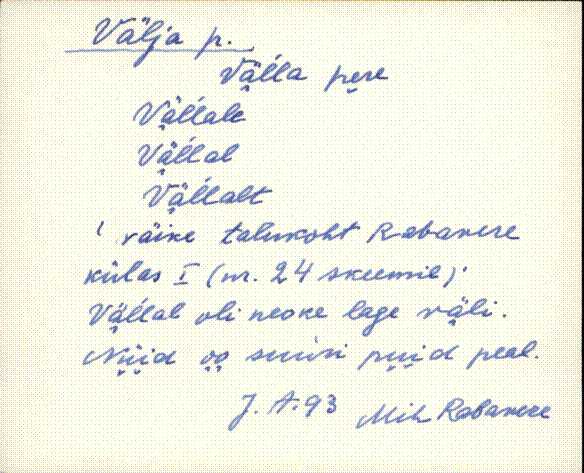 Välja p.
Väĺla pere
Väĺlale
Väĺlal
Väĺlalt
' väike talukoht Rabavere
külas I (nr. 24 skeemil)'
Väĺlal oli neoke lage väli.
Nüid oo suuri puid peal.
J. A. 93 Mih Rabavere